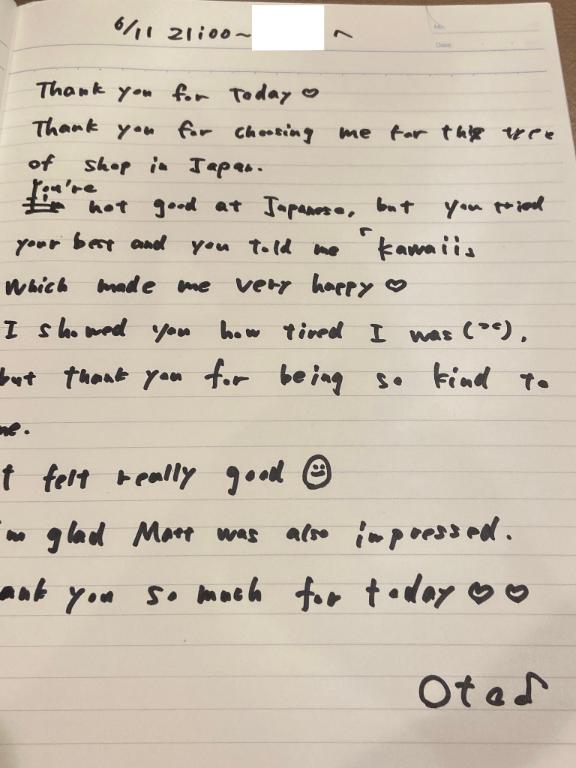 6/11 21:00~ へ
Thank you for Today♡
Thank you for choosing me for this
of shop in Japan.
You're
not good at Japanese, but you tried
your best and you told me 「kawaii」
which made me very happy♡
I showed you how tired I was (><),
but thank you for being so kind to
me.
I felt really good ☺
I'm glad Matt was also impressed.
ank you so much for today♡♡
Oto♪